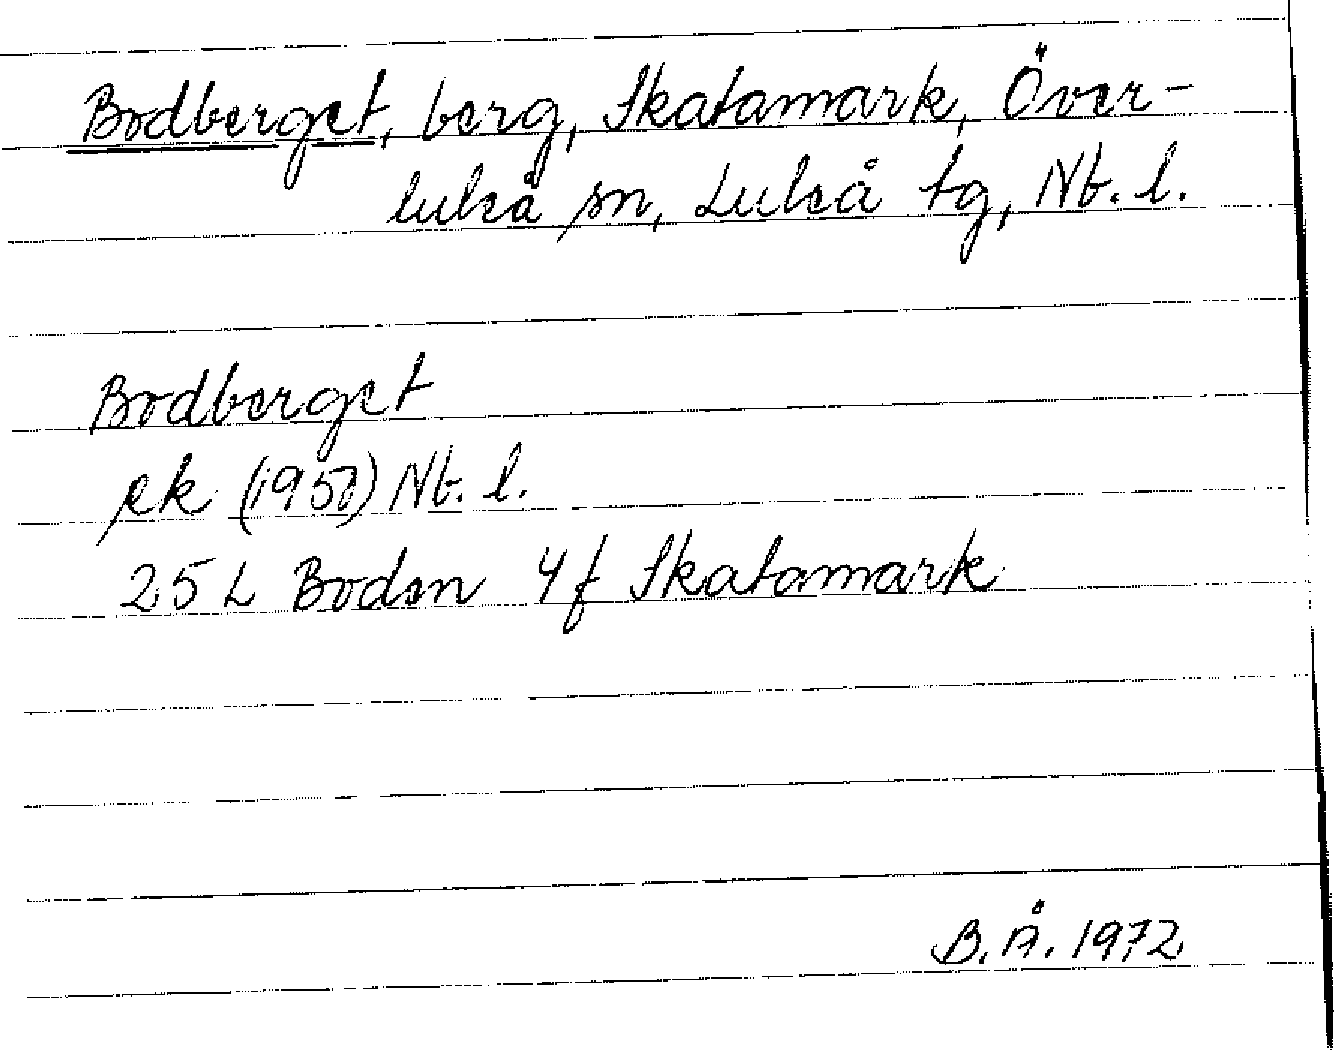 Bodberget, berg, Skatamark, Över-
luleå sn, Luleå tg, Nb. l.
Bodberget
ek (1950) Nb. l.
25 L Boden 4f Skatamark
B. Å. 1972